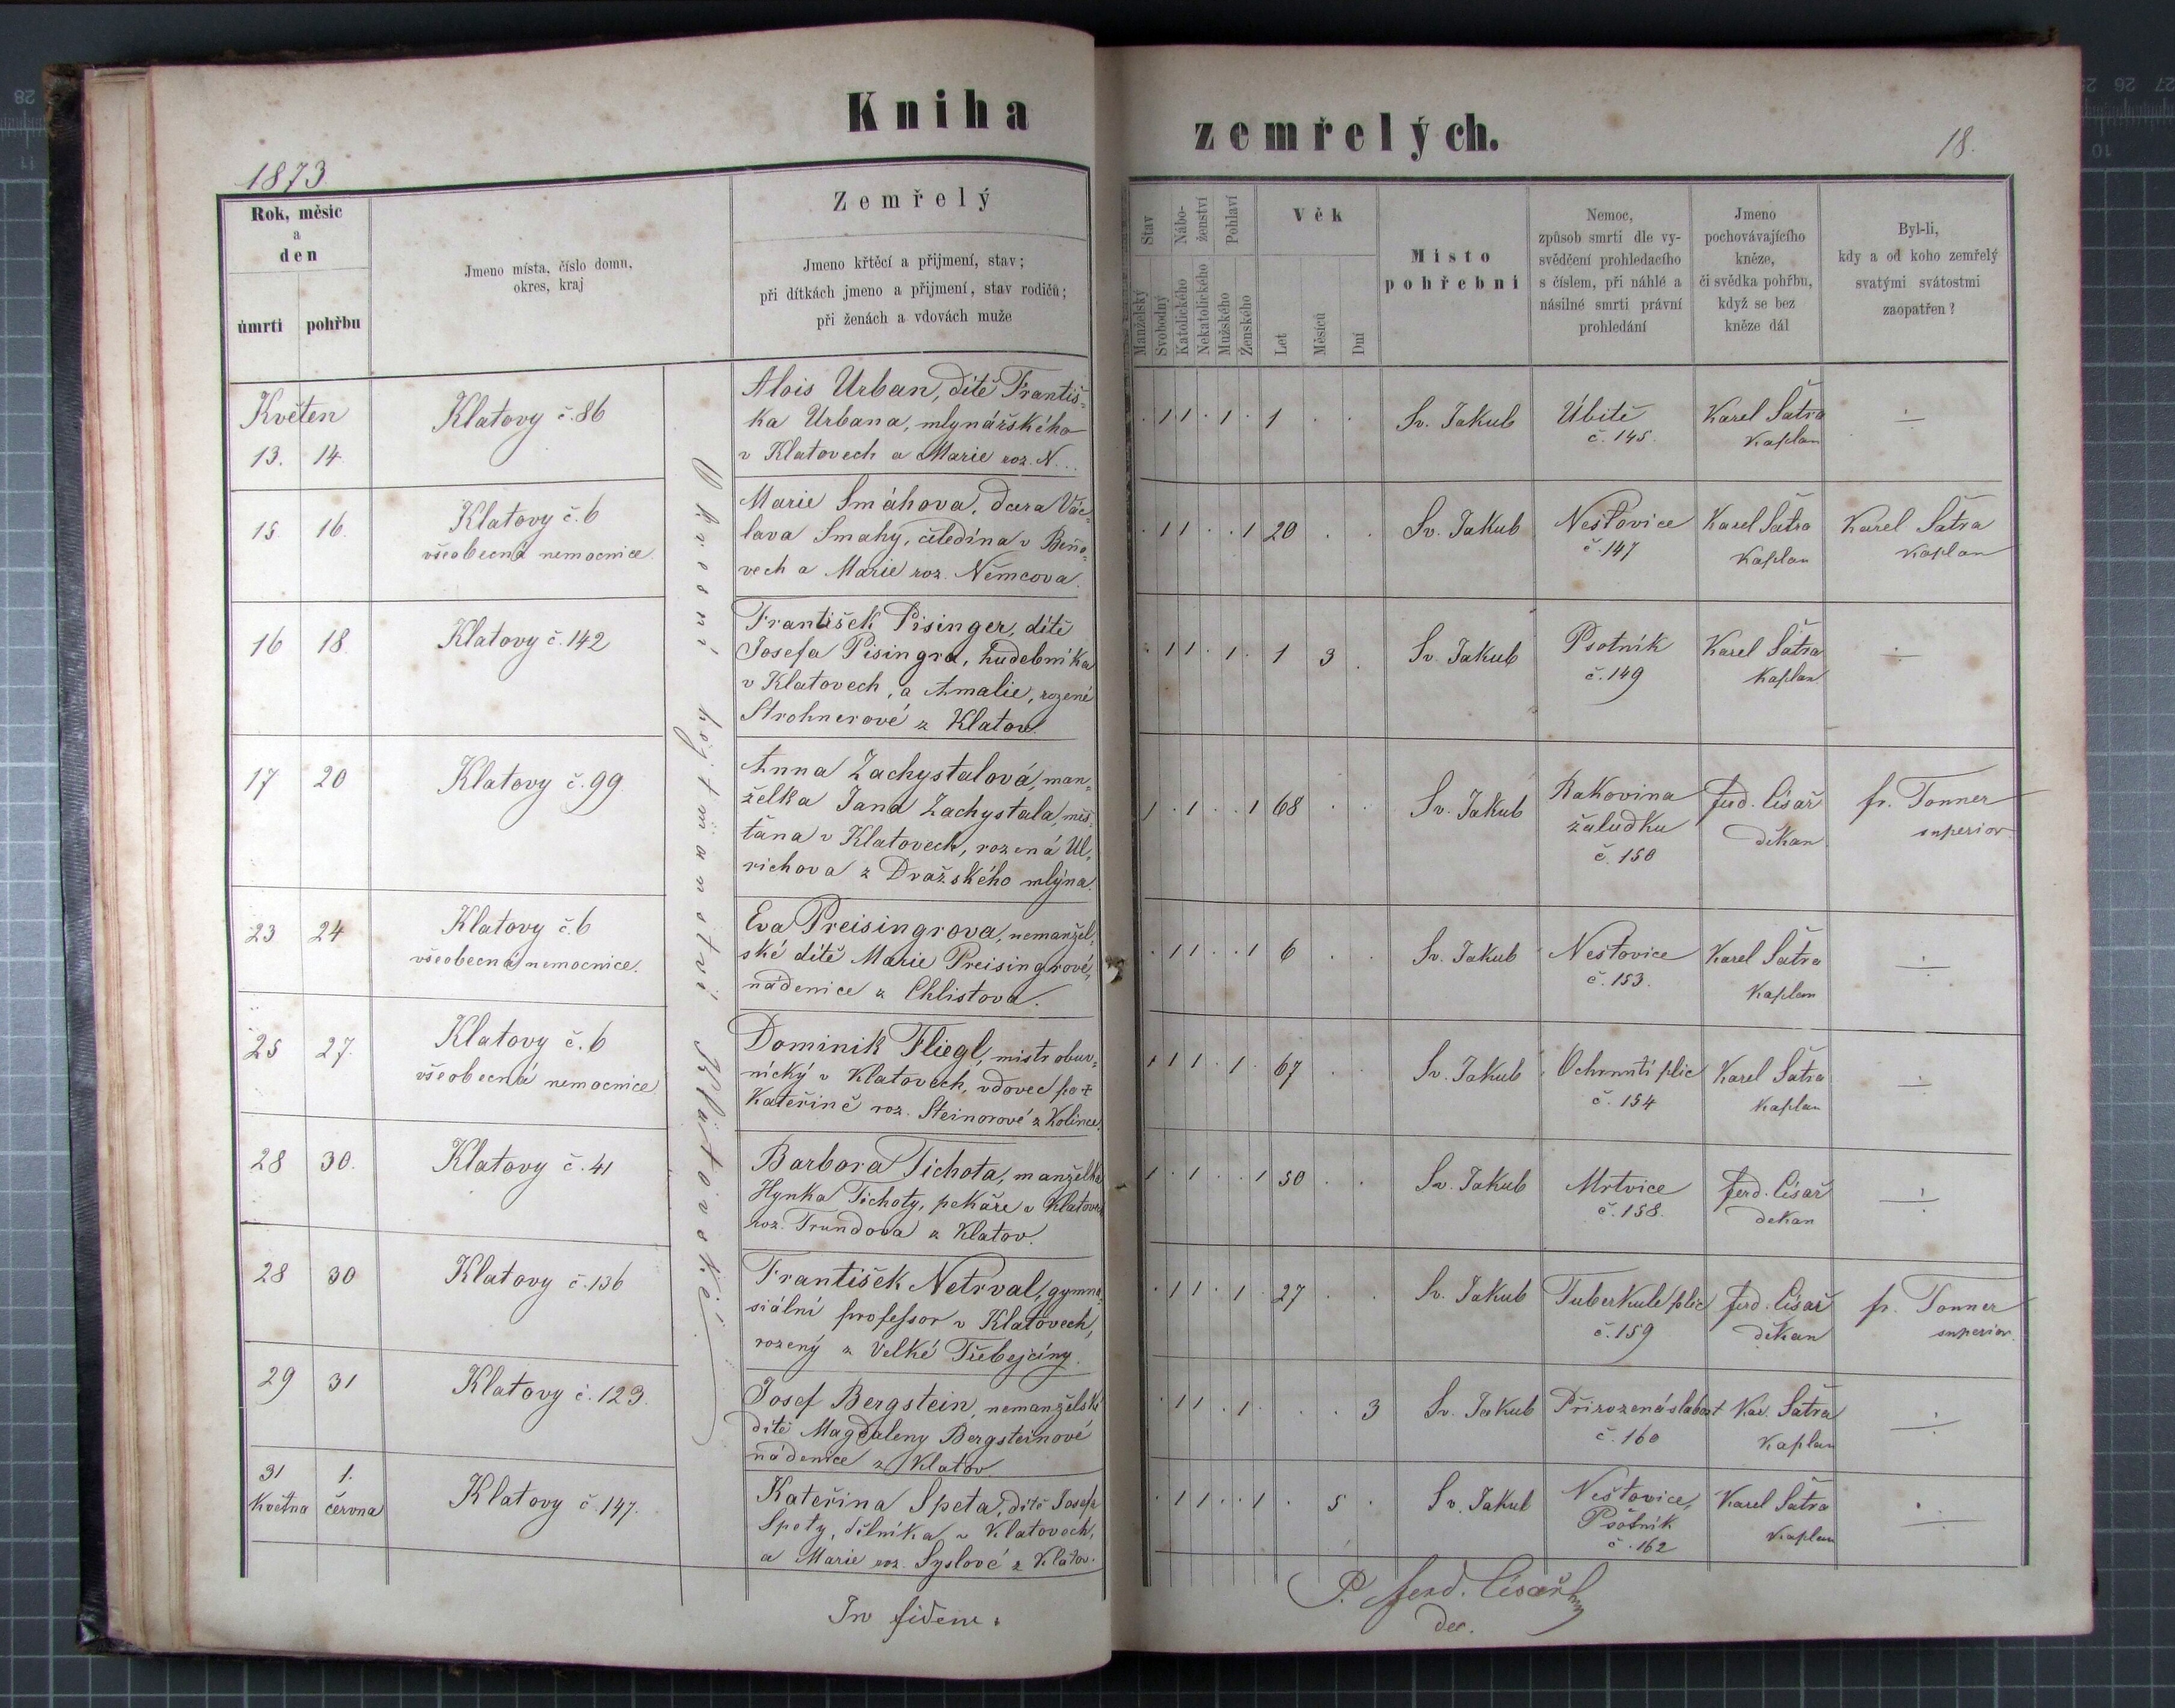 Kniha
zemřelých.
1873.
18.
Rok, měsic
a
den
úmrti
pohřbu
Jmeno místa, číslo domu,
okres, kraj
Zemřelý
Jmeno křtěcí a přijmení, stav;
při dítkách jmeno a přijmení, stav rodičů;
při ženách a vdovách muže
Stav
Manželský
Svobodný
Nábo-
ženství
Katolického
Nekatolického
Pohlaví
Mužského
Ženského
Věk
Let
Měsíců
Dní
Místo
pohřební
Nemoc,
způsob smrti dle vy-
svědčení prohledacího
s číslem, při náhlé a
násilné smrti právní
prohledání
Jmeno
pochovávajícího
kněze,
či svědka pohřbu,
když se bez
kněze dál
Byl-li,
kdy a od koho zemřelý
svatými svátostmi
zaopatřen?
Okresní hejtmanství Klatovské
Květen
13. 14.
Klatovy č. 86
Alois Urban, dítě Františ-
ka Urbana, mlynářského
v Klatovech a Marie roz. N...
. 1 1 . 1 . 1 . .
Sv. Jakub
Úbitě
č. 145.
Karel Šatra
Kaplan
15 16.
Klatovy č. 6
všeobecná nemocnice.
Marie Smáhova, dcera Vác-
lava Smahy, čeledína v Beňo-
vech a Marie roz. Němcova.
. 1 1 . . 1 20 . .
Sv. Jakub
Neštovice
č. 147
Karel Šatra
Kaplan
Karel Šatra
Kaplan
16 18.
Klatovy č. 142
František Pisinger, dítě
Josefa Pisingra, hudebníka
v Klatovech, a Amalie, rozené
Strohnerové z Klatov.
. 1 1 . 1 . 1 3 .
Sv. Jakub
Psotník
č. 149
Karel Šatra
Kaplan
17 20
Klatovy č. 99
Anna Zachystalová, man-
želka Jana Zachystala, měš-
ťana v Klatovech, rozená Ul-
richova z Dražského mlýna.
1 . 1 . . 1 68 . .
Sv. Jakub
Rakovina
žaludku
č. 150
Ferd. Císař
děkan
fr. Tonner
superior
23 24
Klatovy č. 6
všeobecná nemocnice.
Eva Preisingrova, nemanžel-
ské dítě Marie Preisingrové,
nádenice z Chlistova.
. 1 1 . . 1 6 . .
Sv. Jakub
Neštovice
č. 153.
Karel Šatra
Kaplan
25 27.
Klatovy č. 6
všeobecná nemocnice
Dominik Fliegl, mistr obuv-
nický v Klatovech, vdovec po †
Kateřině roz. Steinorové z Kolince.
. 1 1 . 1 . 67 . .
Sv. Jakub
Ochrnutí plic
č. 154
Karel Šatra
Kaplan
28 30.
Klatovy č. 41
Barbora Tichota, manželka
Hynka Tichoty, pekaře v Klatovech
roz. Trundova z Klatov.
1 . 1 . . 1 50 . .
Sv. Jakub
Mrtvice
č. 158.
Ferd. Císař
děkan
28 30
Klatovy č. 136
František Netrval, gymna-
siální professor v Klatovech,
rozený z Velké Třebejčiny.
. 1 1 . 1 . 27 . .
Sv. Jakub
Tuberkule plic
č. 159
Ferd. Císař
děkan
fr. Tonner
superior.
29 31
Klatovy č. 123.
Josef Bergstein, nemanželské
dítě Magdaleny Bergsteinové
nádenice z Klatov
. 1 1 . 1 . . . 3
Sv. Jakub
Přirozená slabost
č. 160
Kar. Šatra
Kaplan
31 1.
Května června
Klatovy č. 147.
Kateřina Speta, dítě Josefa
Spety, dělníka v Klatovech,
a Marie roz. Syslové z Klatov.
. 1 1 . . 1 . 5 .
Sv. Jakub
Neštovice,
Psotník
č. 162
Karel Šatra
Kaplan
In fidem.
P. Ferd. Císař
dec.